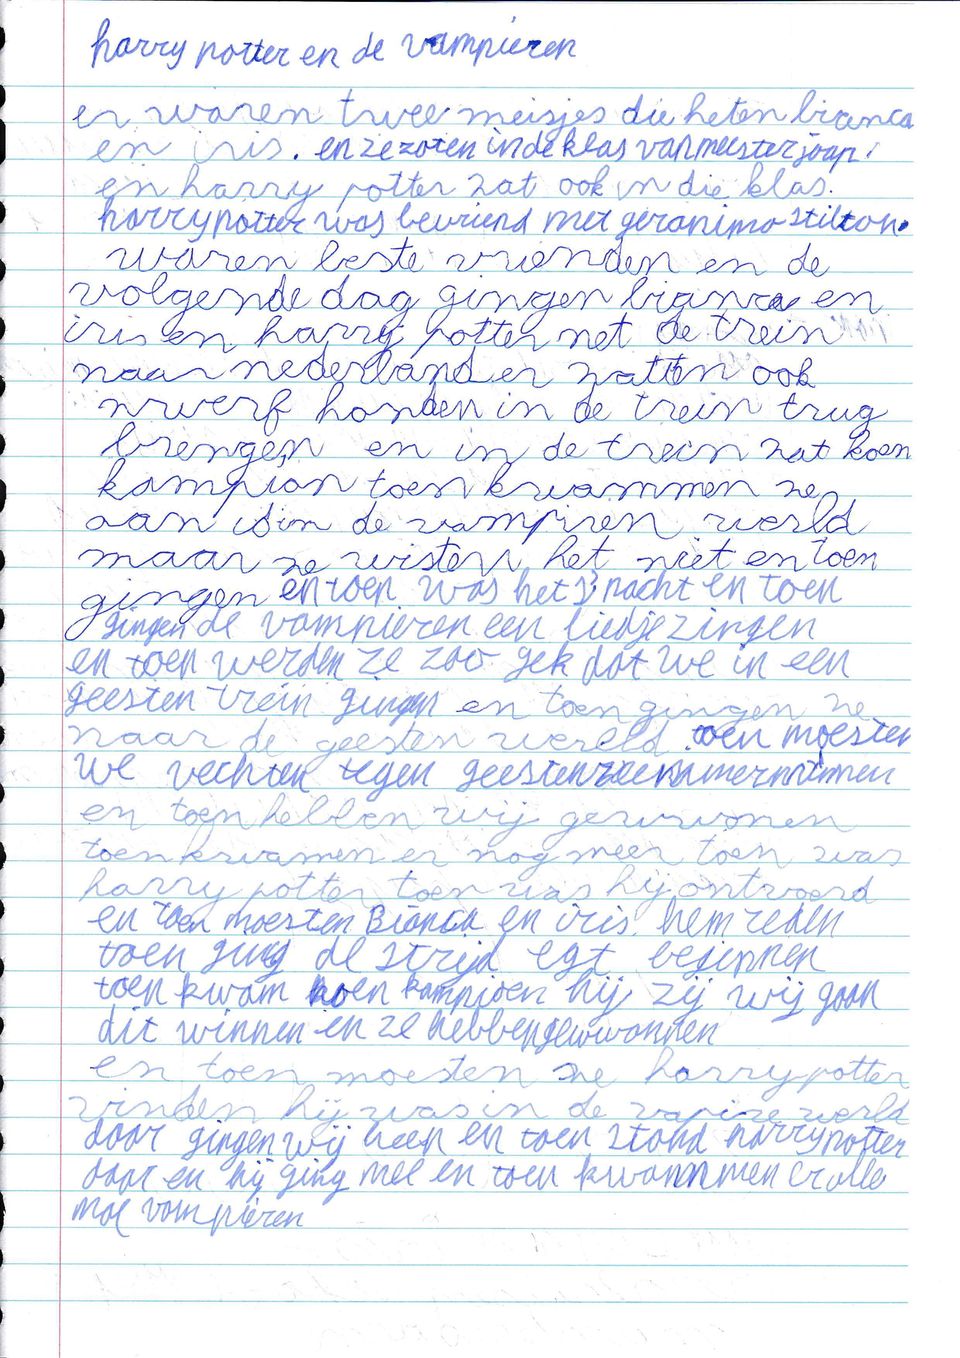 harry potter en de vampieren
er waren twee meisjes die heten bianca
en iris. en ze zoten in de klas van meester joap.
en harry potter zat ook in die klas.
harry potter was bevriend met geronimo stilton.
waren beste vrienden en de
volgende dag gingen bianca en
iris en harry potter met de trein
naar nederland er zatten ook
zwerf honden in de trein trug
brengen en in de trein zat koen
kampion toen kwammen ze
aan in de vampiren werld
maar ze wisten het niet en toen
gingen en toen was het s'nacht en toen
gingen de vampieren een liedje zingen
en toen werden ze zoo gek dat we in een
geesten trein gingen en toen gingen ze
naar de geesten wereld toen moesten
we vechten tegen geesten
en toen hebben wij gewwonen
toen kwamen er nog meer toen was
harry potter toen was hij ontvoerd
en toen moesten Bianca en iris hem reden
toen ging de strijd egt beginnen
toen kwam koen kampioen hij zij wij gaan
dit winnen en ze hebben gewwonden
en toen moesten ze harry potter
vinden hij was in de vapire werld
daar gingen wij heen en toen stond harry potter
daar en hij ging mee en toen kwammen er alle
mal vampieren